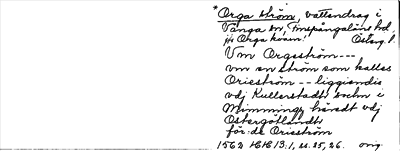 * Orga ström, vattendrag i
Vånga sn, Finspångaläns hd,
jfr Orga kvarn! Östergl.
Vm Orgeström ---
vm en ström som kallas
Orieström -- liggiandis
vdj Kullerstadz sochn i
Memmings häradt vdj
Östergötlandt
för de Orieström
1562 HH 13:1, u. 25, 26. orig.